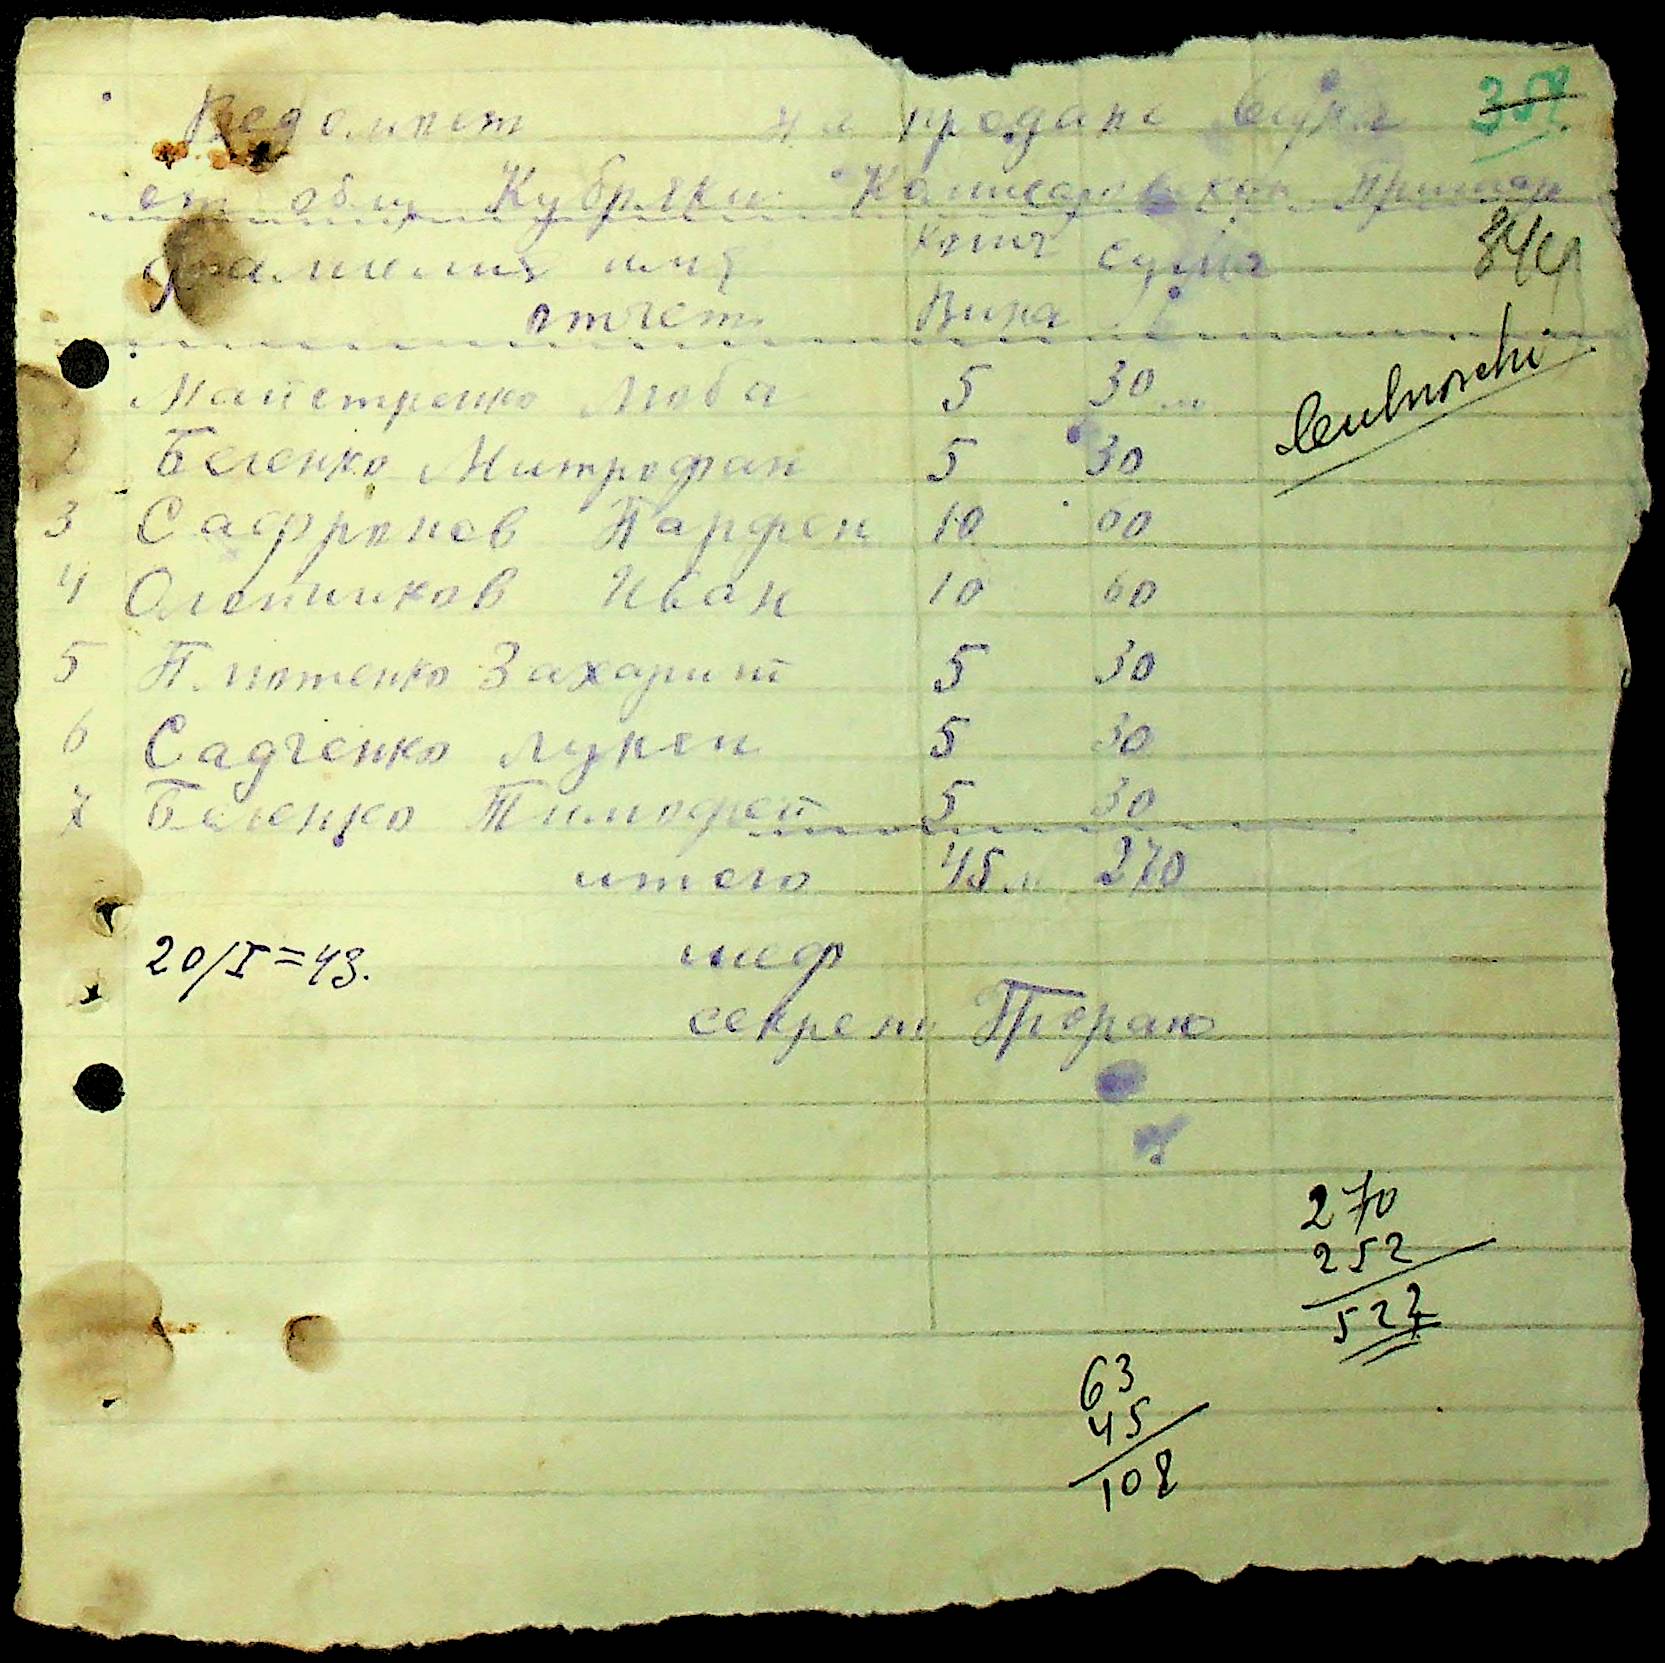 Ведомост на продане вина 351
от общ Кубряки Комисаровкой Примар
Фамилия имя Колич Сума 344
отчет Вина
Майстренко Люба 5 30
2 Беленко Митрофан 5 30
3 Сафронов Парфен 10 60
4 Олейников Иван 10 60
5 Плютенко Захарий 5 30
6 Садченко Лукен 5 30
7 Беленко Тимофей 5 30
итого 45 л 270
20/I=43. шеф
секрет
270
252
522
63
45
108